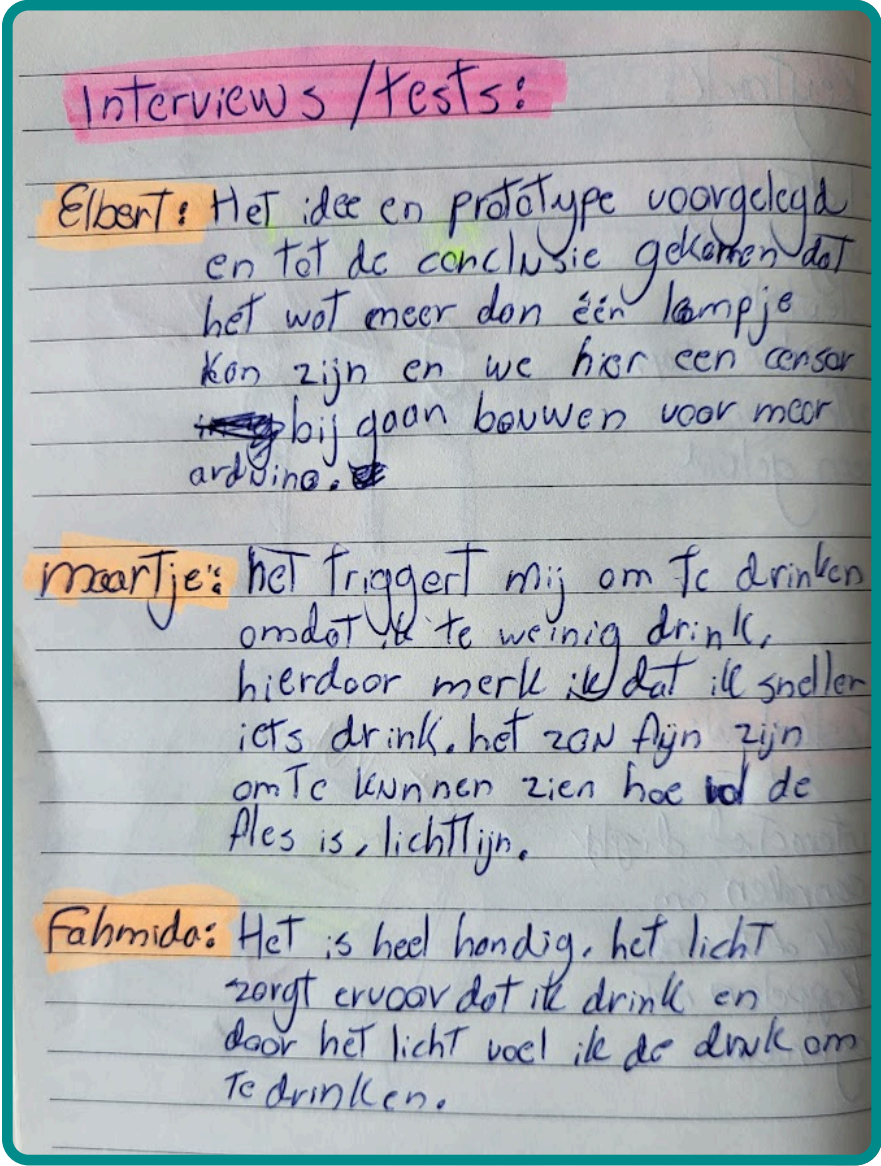 Interviews / tests:
Elbert: Het idee en prototype voorgelegd
en tot de conclusie gekomen dat
het wat meer dan één lampje
kan zijn en we hier een censor
bij gaan bouwen voor meer
arduino.
Maartje: het triggert mij om te drinken
omdat ik te weinig drink,
hierdoor merk ik dat ik sneller
iets drink. het zou fijn zijn
om te kunnen zien hoe vol de
fles is, lichtlijn.
Fahmida: Het is heel handig. het licht
zorgt ervoor dat ik drink en
door het licht voel ik de druk om
te drinken.